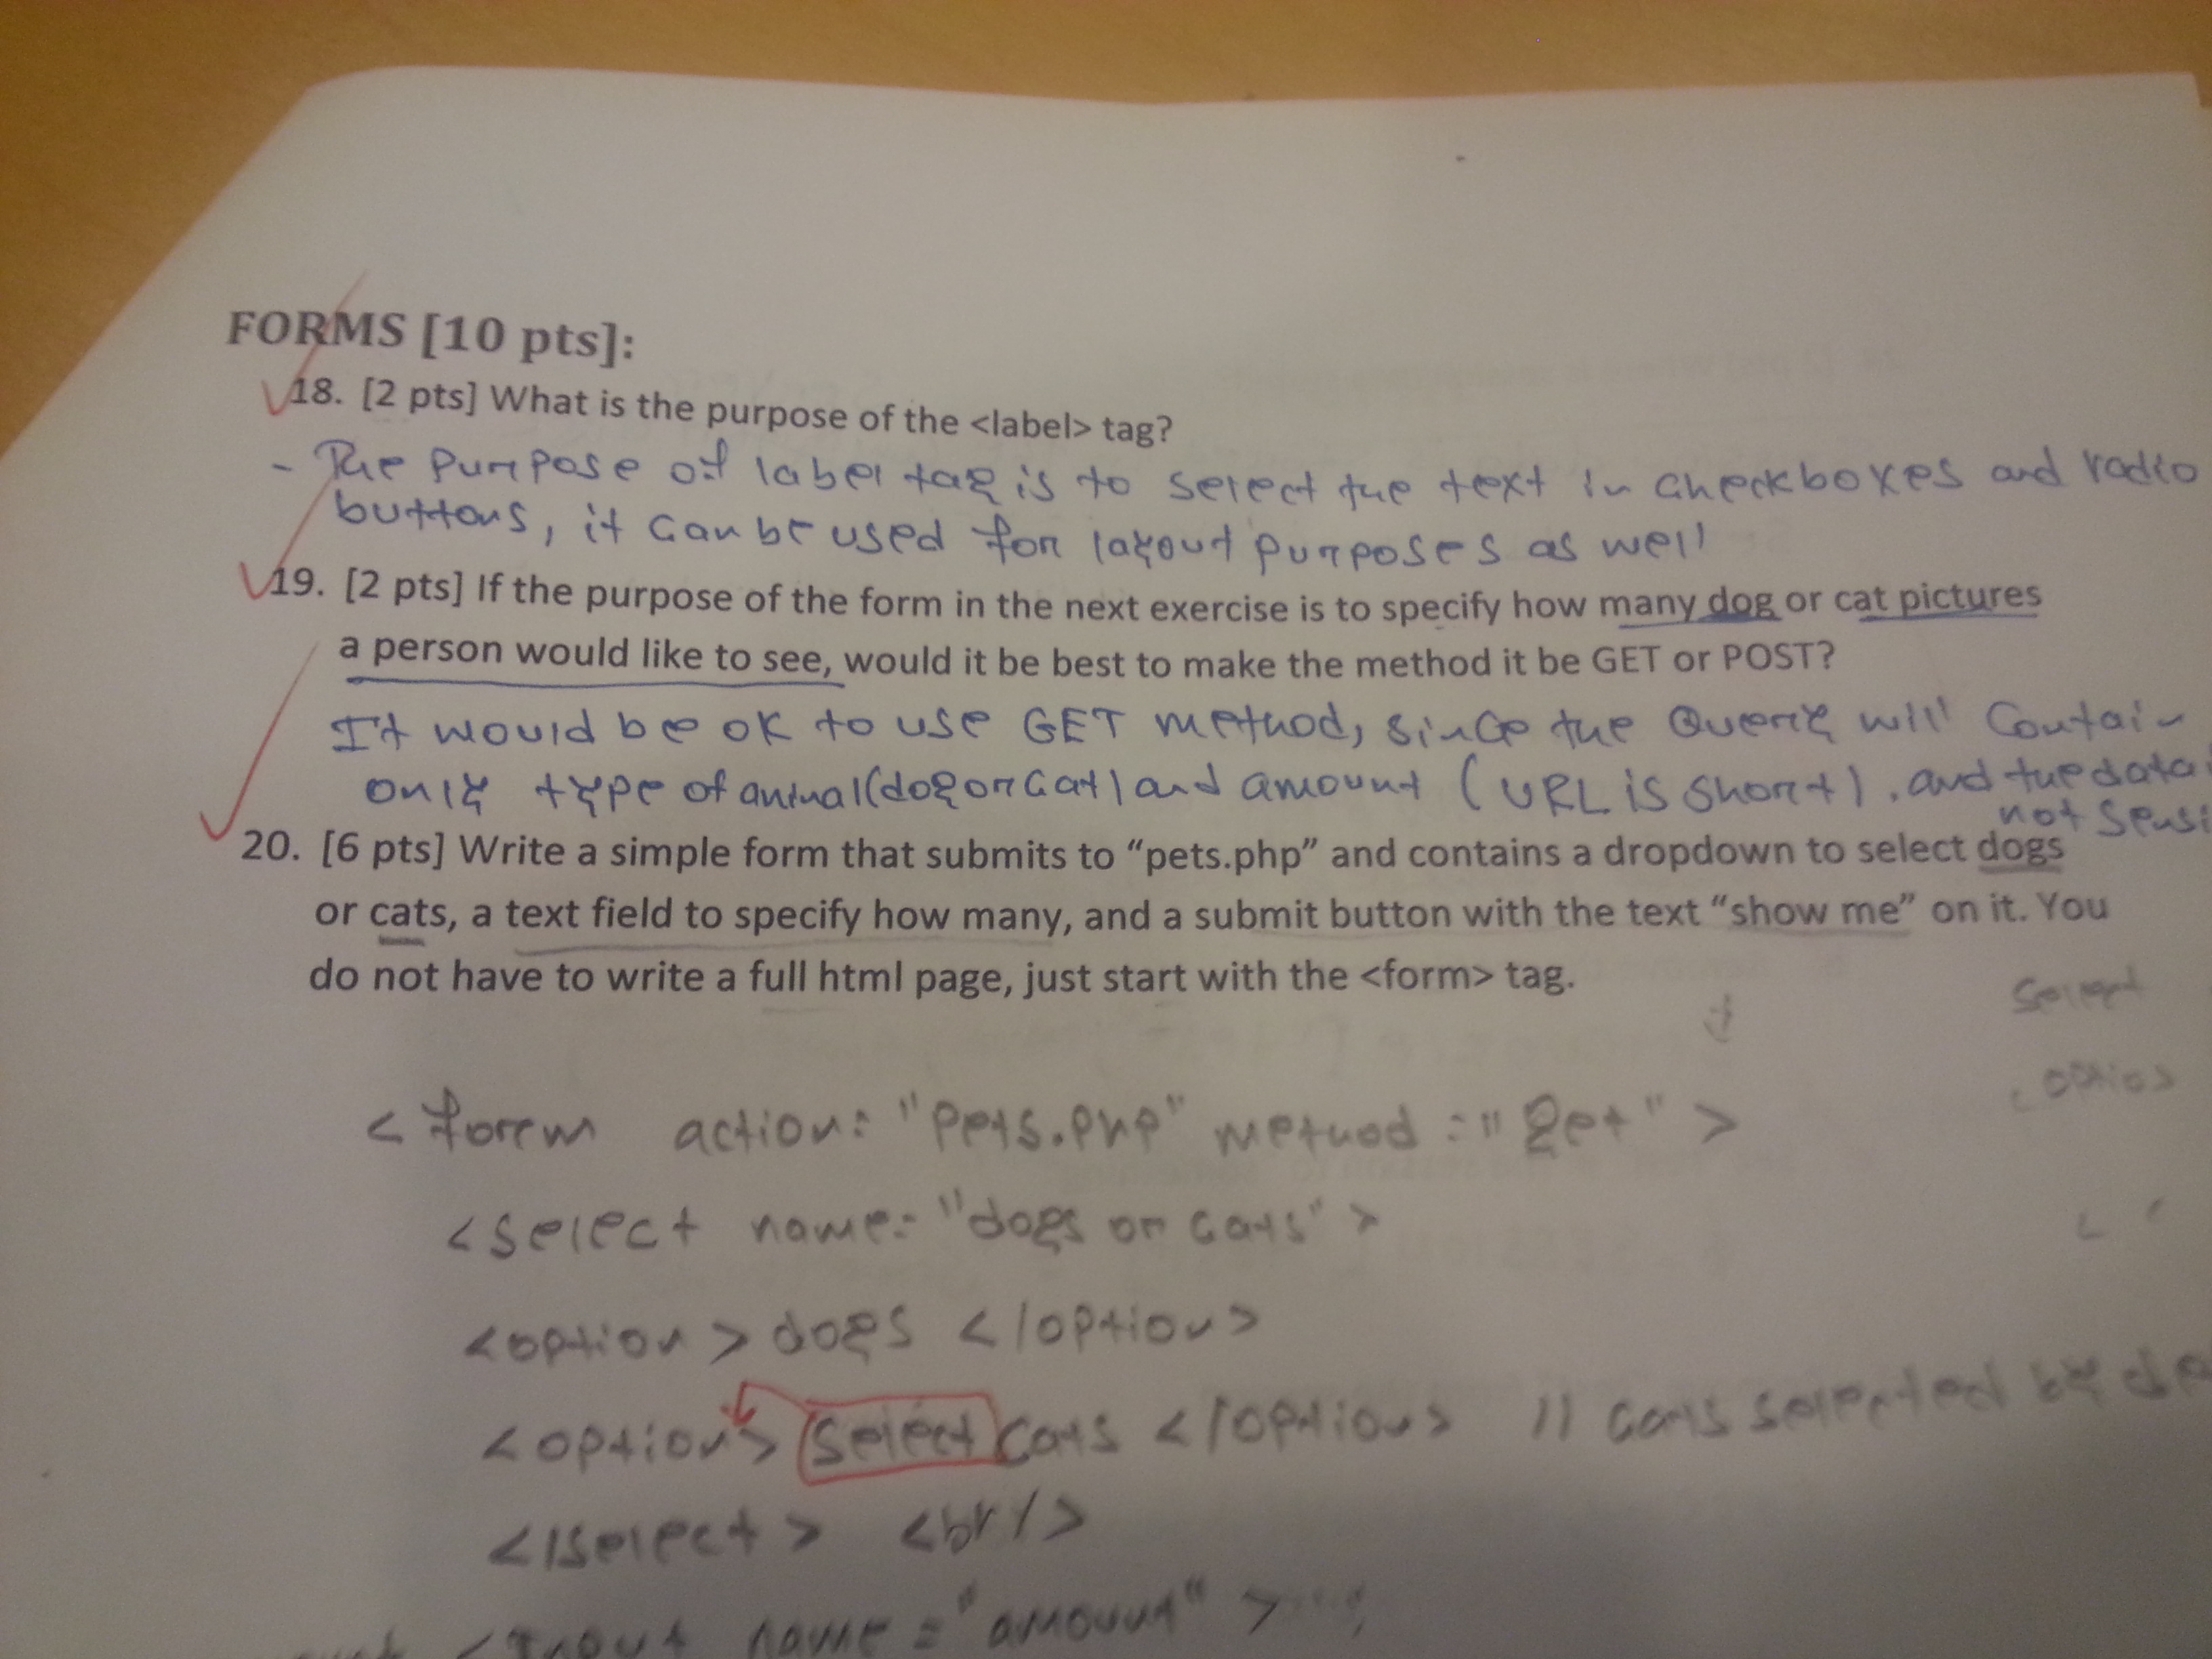 FORMS [10 pts]:
18. [2 pts] What is the purpose of the <label> tag?
- The purpose of label tag is to select the text in checkboxes and radio
buttons, it can be used for layout purposes as well
19. [2 pts] If the purpose of the form in the next exercise is to specify how many dog or cat pictures
a person would like to see, would it be best to make the method it be GET or POST?
It would be ok to use GET method, since the Query will contain
only type of animal (dog or cat) and amount (URL is short). and the data
not
20. [6 pts] Write a simple form that submits to “pets.php” and contains a dropdown to select dogs
or cats, a text field to specify how many, and a submit button with the text “show me” on it. You
do not have to write a full html page, just start with the <form> tag.
select
option
<form action="pets.php" method="get">
<select name="dogs or cats">
<option> dogs </option>
<option> select cats </option> // cats selected by
</select> <br/>
<Input name="amount">